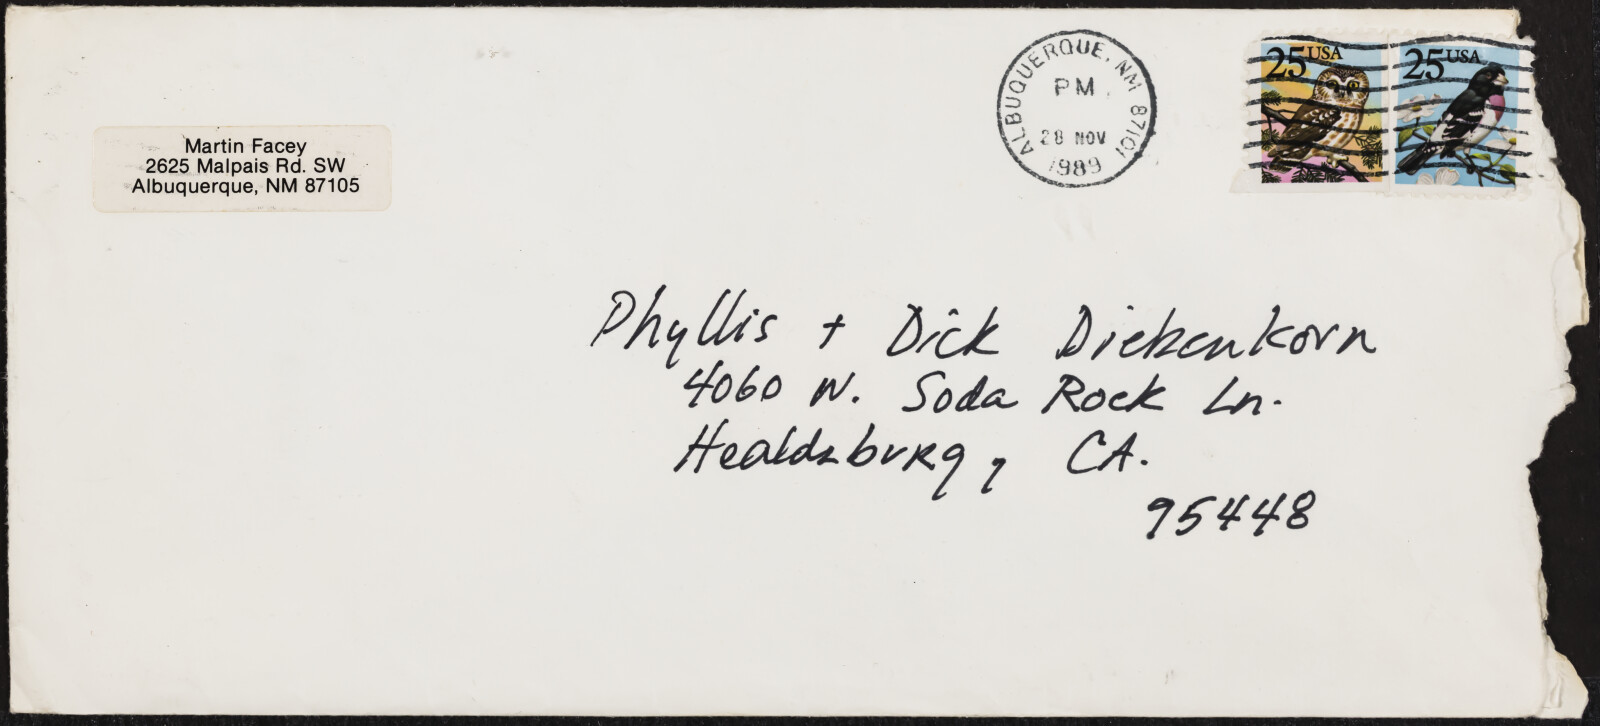 Martin Facey
2625 Malpais Rd. SW
Albuquerque, NM 87105
ALBUQUERQUE, NM 87101
PM
28 NOV
1989
25 USA
25 USA
Phyllis + Dick Diebenkorn
4060 N. Soda Rock Ln.
Healdsburg, CA.
95448